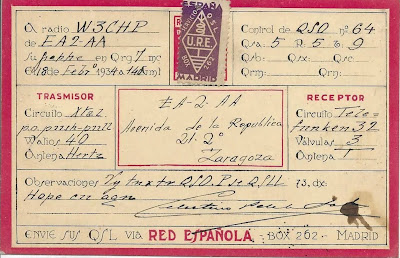 A radio W3CHP
de EA2-AA
Su Qrg 7 mc
El 18 Febrº 1934 a gmt
ESPAÑA
U.R.E.
MADRID
Control de QSO nº 64
Qsa: 5 R: 5 to 9
Qsb: Qsx: Qsc:
Qrm: Qrn:
TRASMISOR
Circuito Xtal
po. push-pull
Watios 40
Antena Hertz
EA-2-AA
Avenida de la Republica
21-2º
Zaragoza
RECEPTOR
Circuito Tele-
funken 32
Válvulas 3
Antena
Observaciones Vy tnx QSO. Pse QSLL 73, dx:
Hope cu agn
ENVIE SUS QSL VIA RED ESPAÑOLA - BOX 262 - MADRID